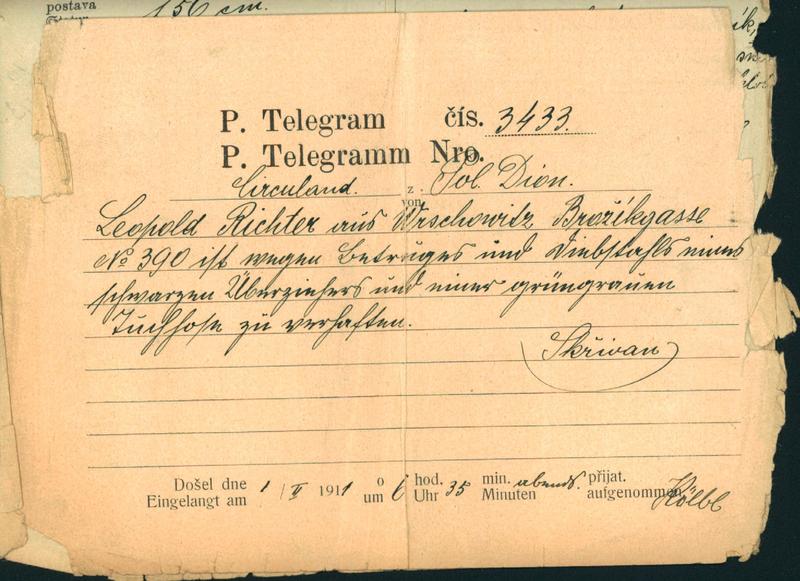 postava 156 cm.
P. Telegram čís. 3433.
P. Telegramm Nro.
Circuland. z Pol. Dion.
von
Leopold Richter aus Wrschowitz Brožikgasse
No 390 ist wegen Betruges und Diebstahls eines
schwarzen Überziehers und einer grüngrauen
Tuchhose zu verhaften.
Skřivan
Došel dne 1/II 1911 o 6 hod. 35 min. abends. přijat.
Eingelangt am um Uhr Minuten aufgenommen Kölbl